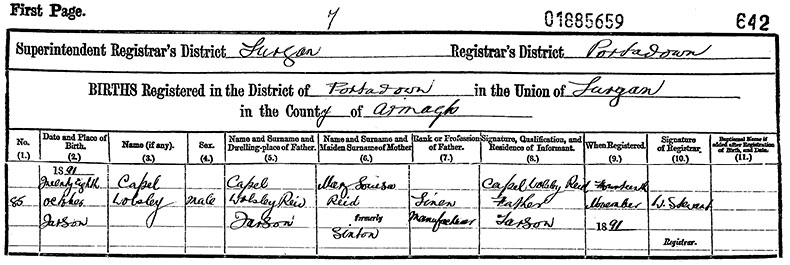 First Page.
7
01885659
642
Superintendent Registrar's District Lurgan Registrar's District Portadown
BIRTHS Registered in the District of Portadown in the Union of Lurgan
in the County of Armagh
No. (1.)
Date and Place of Birth. (2.)
Name (if any). (3.)
Sex. (4.)
Name and Surname and Dwelling-place of Father. (5.)
Name and Surname and Maiden Surname of Mother (6.)
Rank or Profession of Father. (7.)
Signature, Qualification, and Residence of Informant. (8.)
When Registered. (9.)
Signature of Registrar. (10.)
Baptismal Name if added after Registration of Birth, and Date. (11.)
85
1891
Twenty Eighth
October
Tarson
Capel
Wolsley
male
Capel
Wolsley Reid
Tarson
Mary Louisa
Reid
formerly
Sinton
Linen
Manufacturer
Capel Wolsley Reid
Father
Tarson
Fourteenth
November
1891
Registrar.